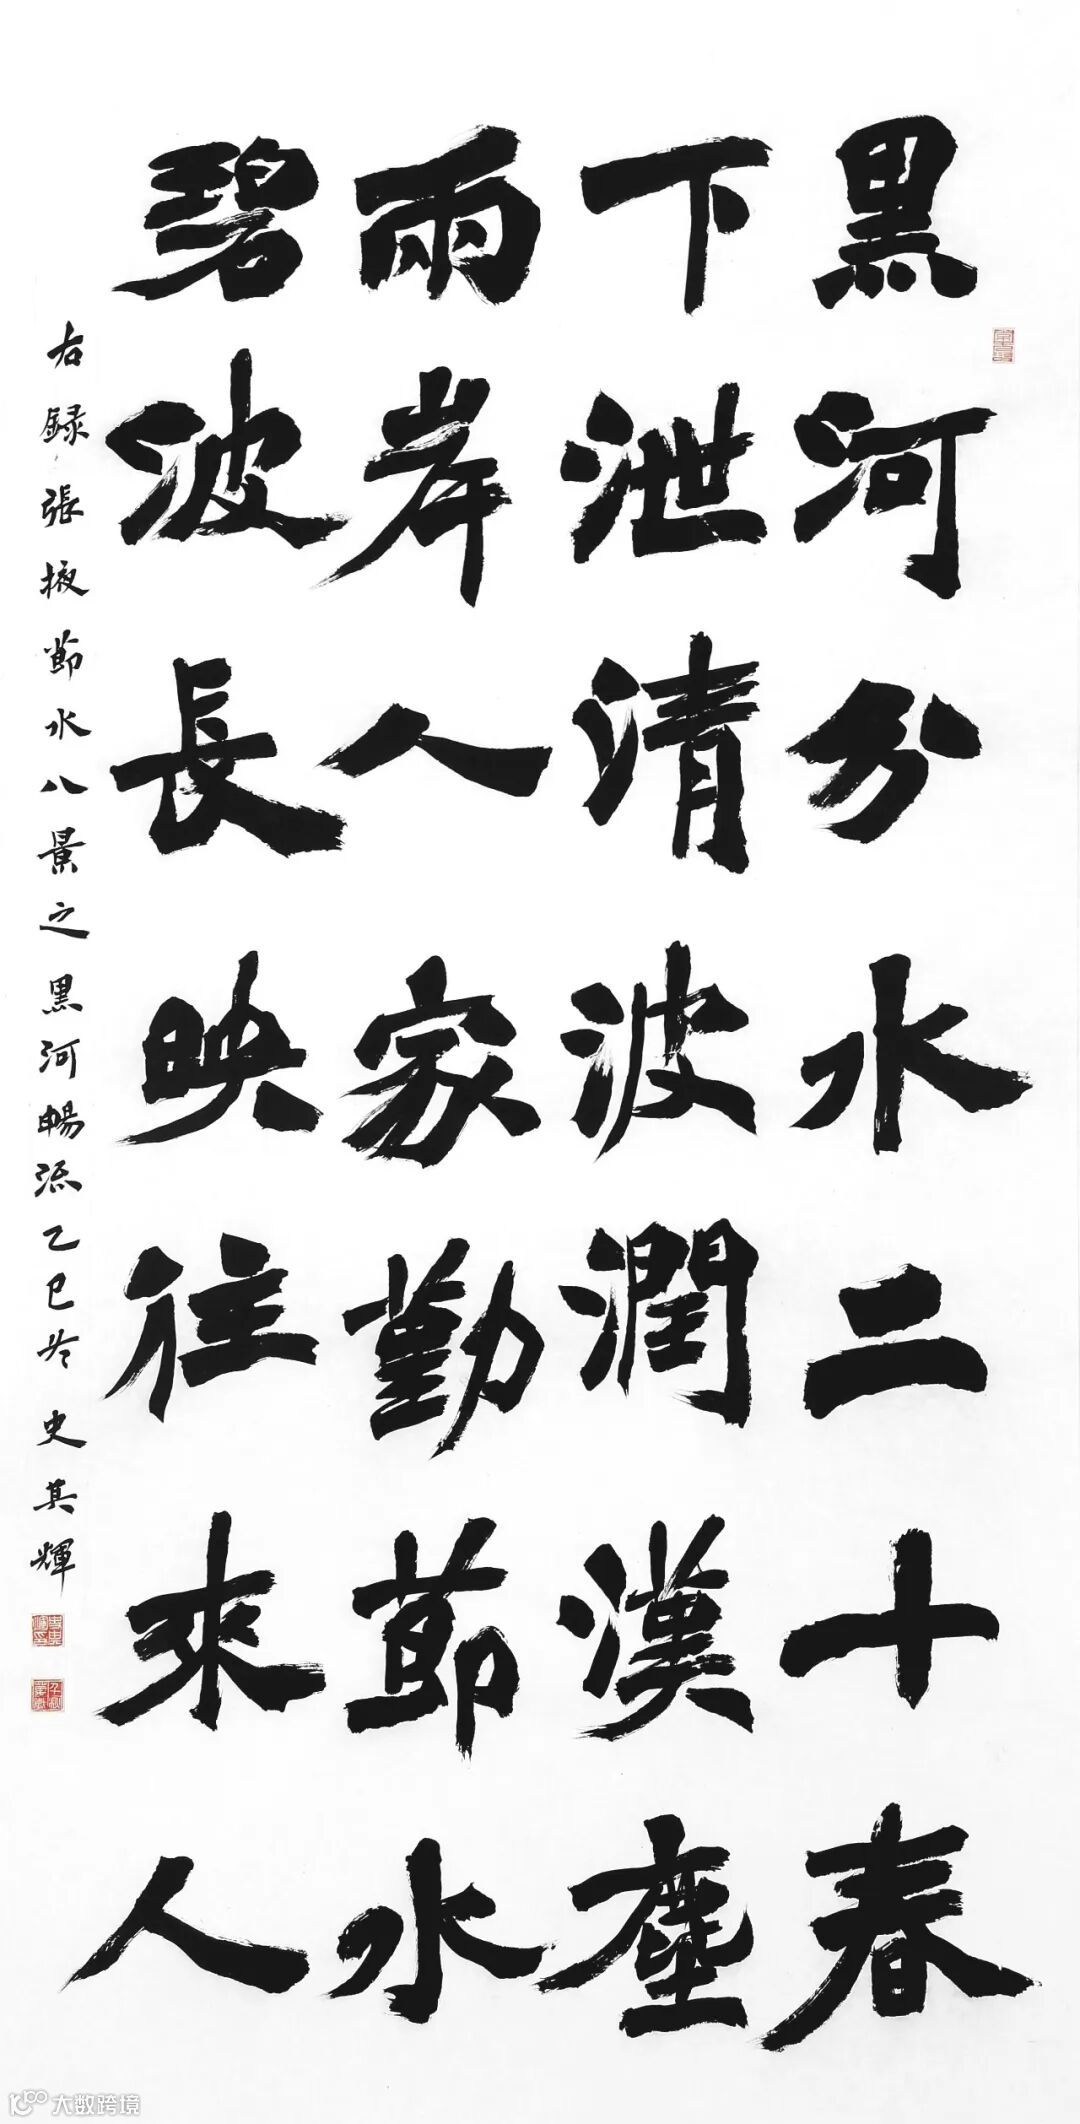 黑河分水二十春
下泄清波潤漢塵
兩岸人家勤節水
碧波長映往來人
右録張掖節水八景之黑河暢流乙巳冬史其輝
大数跨境